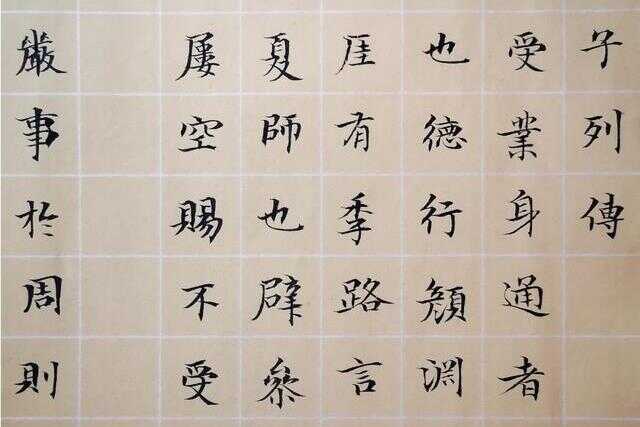 子列傳
受業身通者
也德行顏淵
厓有季路言
夏師也辟叅
屢空賜不受
嚴事於周則